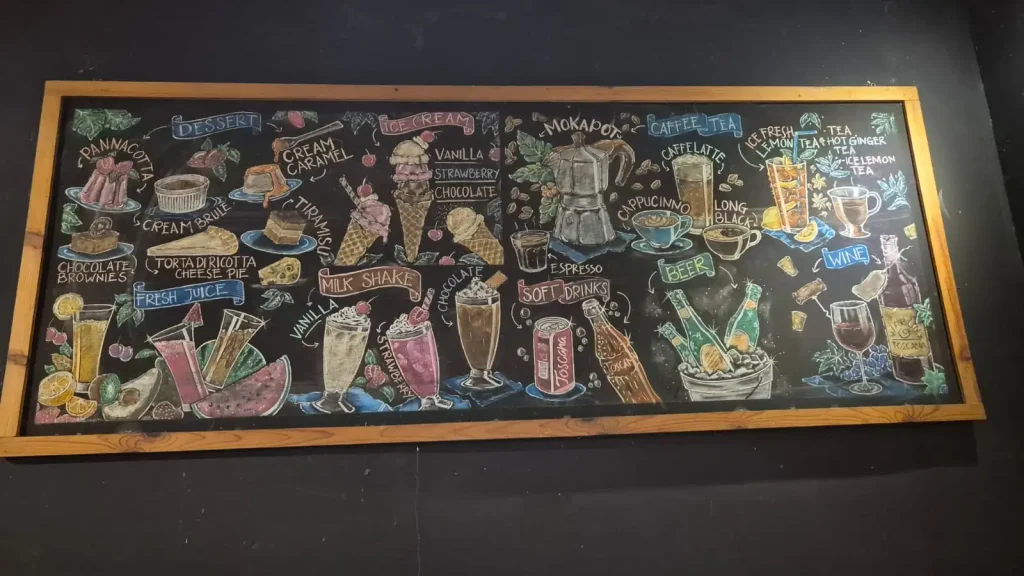 DESSERT
PANNACOTTA
CREAM BRULE
CREAM
CARAMEL
TIRAMISU
CHOCOLATE
BROWNIES
TORTA DI RICOTTA
CHEESE PIE
ICE CREAM
VANILLA
STRAWBERRY
CHOCOLATE
MOKAPOT
ESPRESSO
CAFFE TEA
CAFFE LATTE
CAPPUCINNO
LONG
BLACK
ICE FRESH
LEMON TEA
TEA
HOT GINGER
TEA
ICE LEMON
TEA
FRESH JUICE
MILK SHAKE
VANILLA
STRAWBERRY
CHOCOLATE
SOFT DRINKS
Toscana
BEER
WINE
TOSCANA